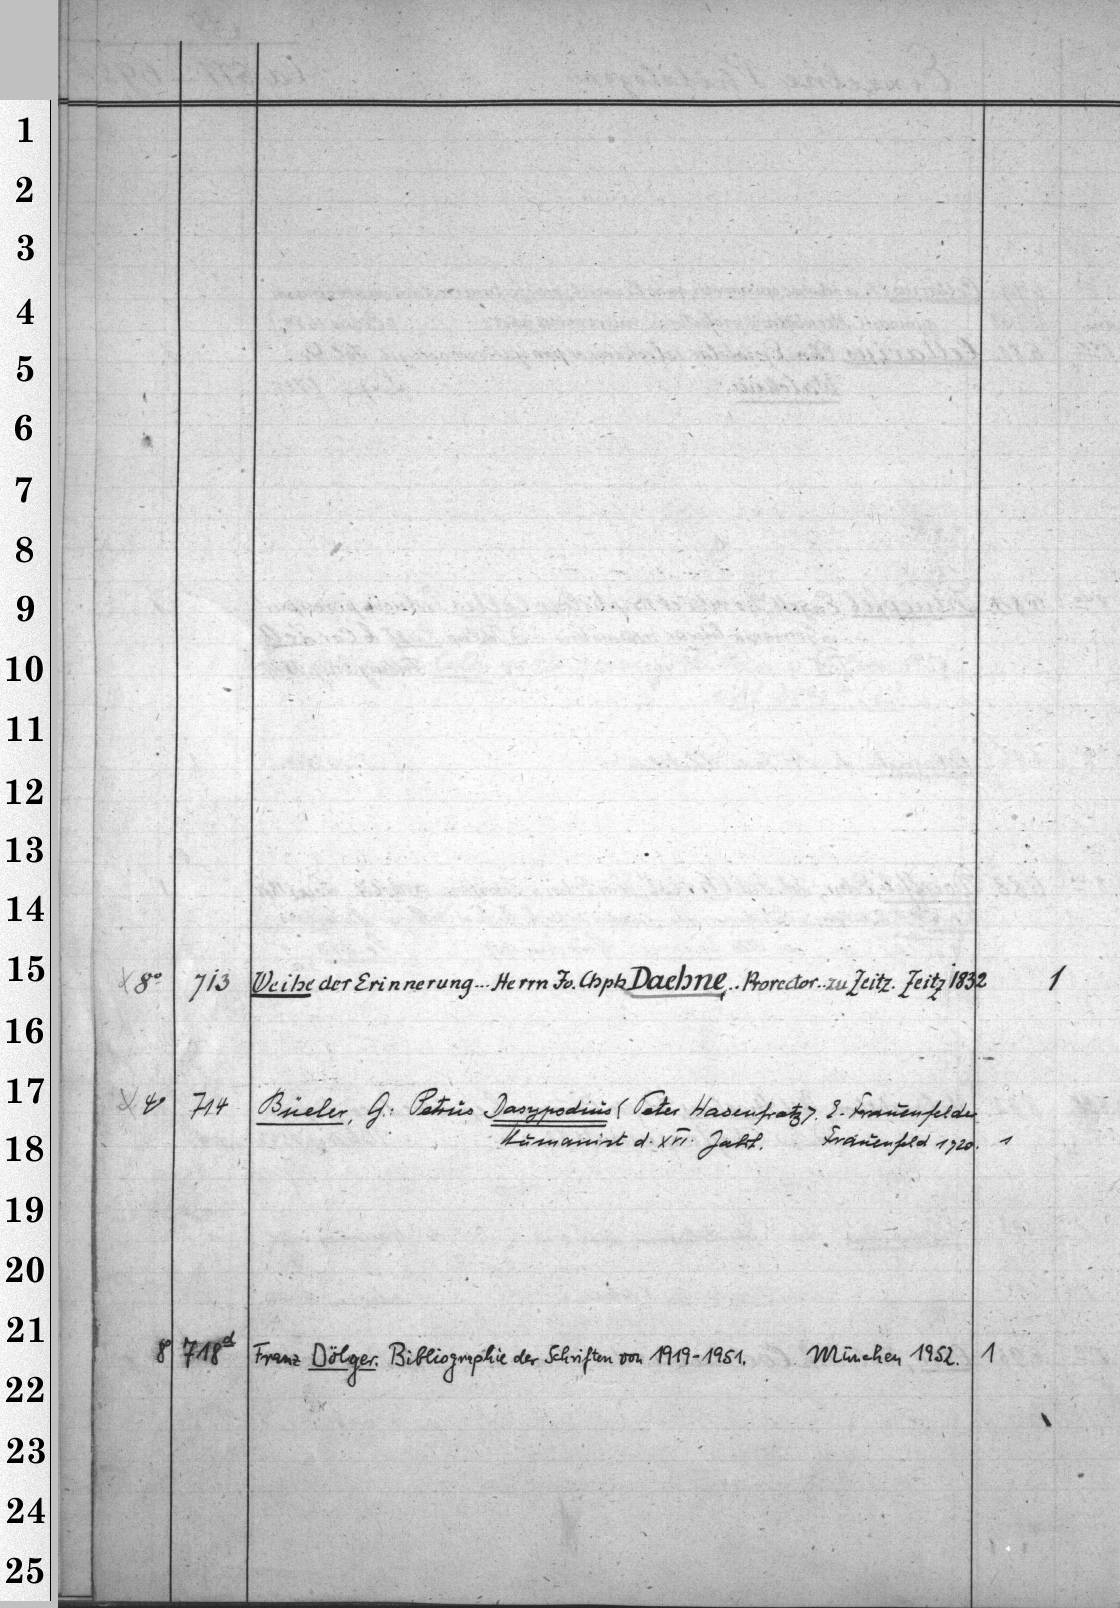 1
2
3
4
5
6
7
8
9
10
11
12
13
14
15
x 8° 713 Weihe der Erinnerung... Herrn Jo. Chph Daehne, .. Prorector .. zu Zeitz. Zeitz 1832 1
16
17
x 4° 714 Büeler, G.: Petrus Dasypodius (Peter Hasenfratz). E. Frauenfelder
18
Humanist d. XVI. Jahrh. Frauenfeld 1920. 1
19
20
21
8 718d Franz Dölger. Bibliographie der Schriften von 1919-1951. München 1952. 1
22
23
24
25